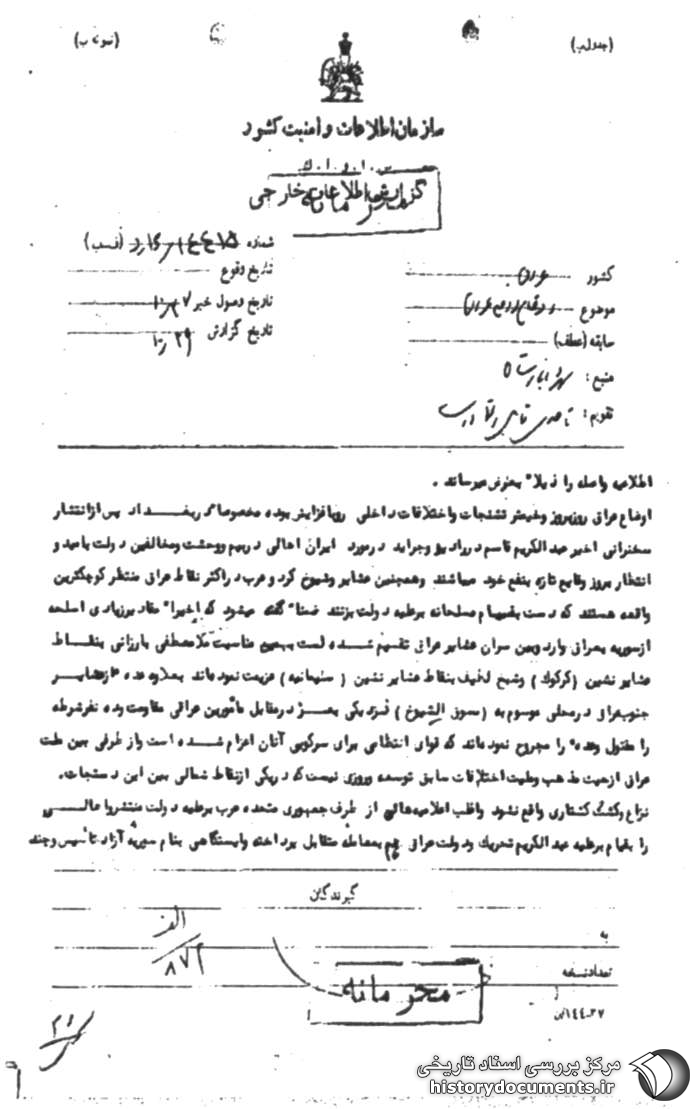 (جدول ب)
(نمونه ب)
سازمان اطلاعات و امنیت کشور
س . ا . و . ا . ک
گزارش اطلاعات خارجی
محرمانه
شماره
تاریخ وقوع
تاریخ وصول خبر
تاریخ گزارش ۱۰/۲۹
کشور عراق
موضوع
سابقه (عطف)
منبع :
تقویم :
اطلاعیه واصله را ذیلا" بعرض میرساند .
اوضاع عراق روزبروز وخیمتر تشنجات و اختلافات داخلی روبافزایش بوده مخصوصا" در بغداد پس از انتشار
سخنرانی اخیر عبدالکریم قاسم در رادیو و جراید در مورد ایران اهالی در بیم و وحشت و مخالفین دولت باامید و
انتظار بروز وقایع تازه بنفع خود میباشند وهمچنین عشایر وشیوخ کرد و عرب در اکثر نقاط عراق منتظر کوچکترین
واقعه هستند که دست بقیام مسلحانه برعلیه دولت بزنند ضمنا" گفته میشود که اخیرا" مقادیر زیادی اسلحه
ازسوریه بعراق وارد وبین سران عشایر عراقی تقسیم شده است بهمین مناسبت ملامصطفی بارزانی بنقاط
عشایر نشین (کرکوک) وشیخ لطیف بنقاط عشایر نشین (سلیمانیه) عزیمت نموده‌اند بعلاوه عده‌ازعشایر
جنوب عراق در محلی موسوم به (سوق الشیوخ) نزدیکی بصره درمقابل مأمورین عراقی مقاومت وده نفرشرطه
را مقتول وعده" را مجروح نموده‌اند که قوای انتظامی برای سرکوبی آنان اعزام شده است واز طرفی بین ملت
عراق ازحیث مذهب وملیت اختلافات سابق توسعه وروزی نیست که در یکی ازنقاط شمالی بین این دستجات
نزاع وکشت کشتاری واقع نشود واغلب اعلامیه‌هائی از طرف جمهوری متحده عرب برعلیه دولت منتشر واهالی
را بقیام برعلیه عبدالکریم تحریک ودولت عراق هم بمعامله متقابل پرداخته وایستگاهی بنام سوریه آزاد تأسیس وچند
گیرندگان
به
تعدادنسخه
الف
۸۷۲
محرمانه
۱۴۴-۳۷
مرکز بررسی اسناد تاریخی
historydocuments.ir